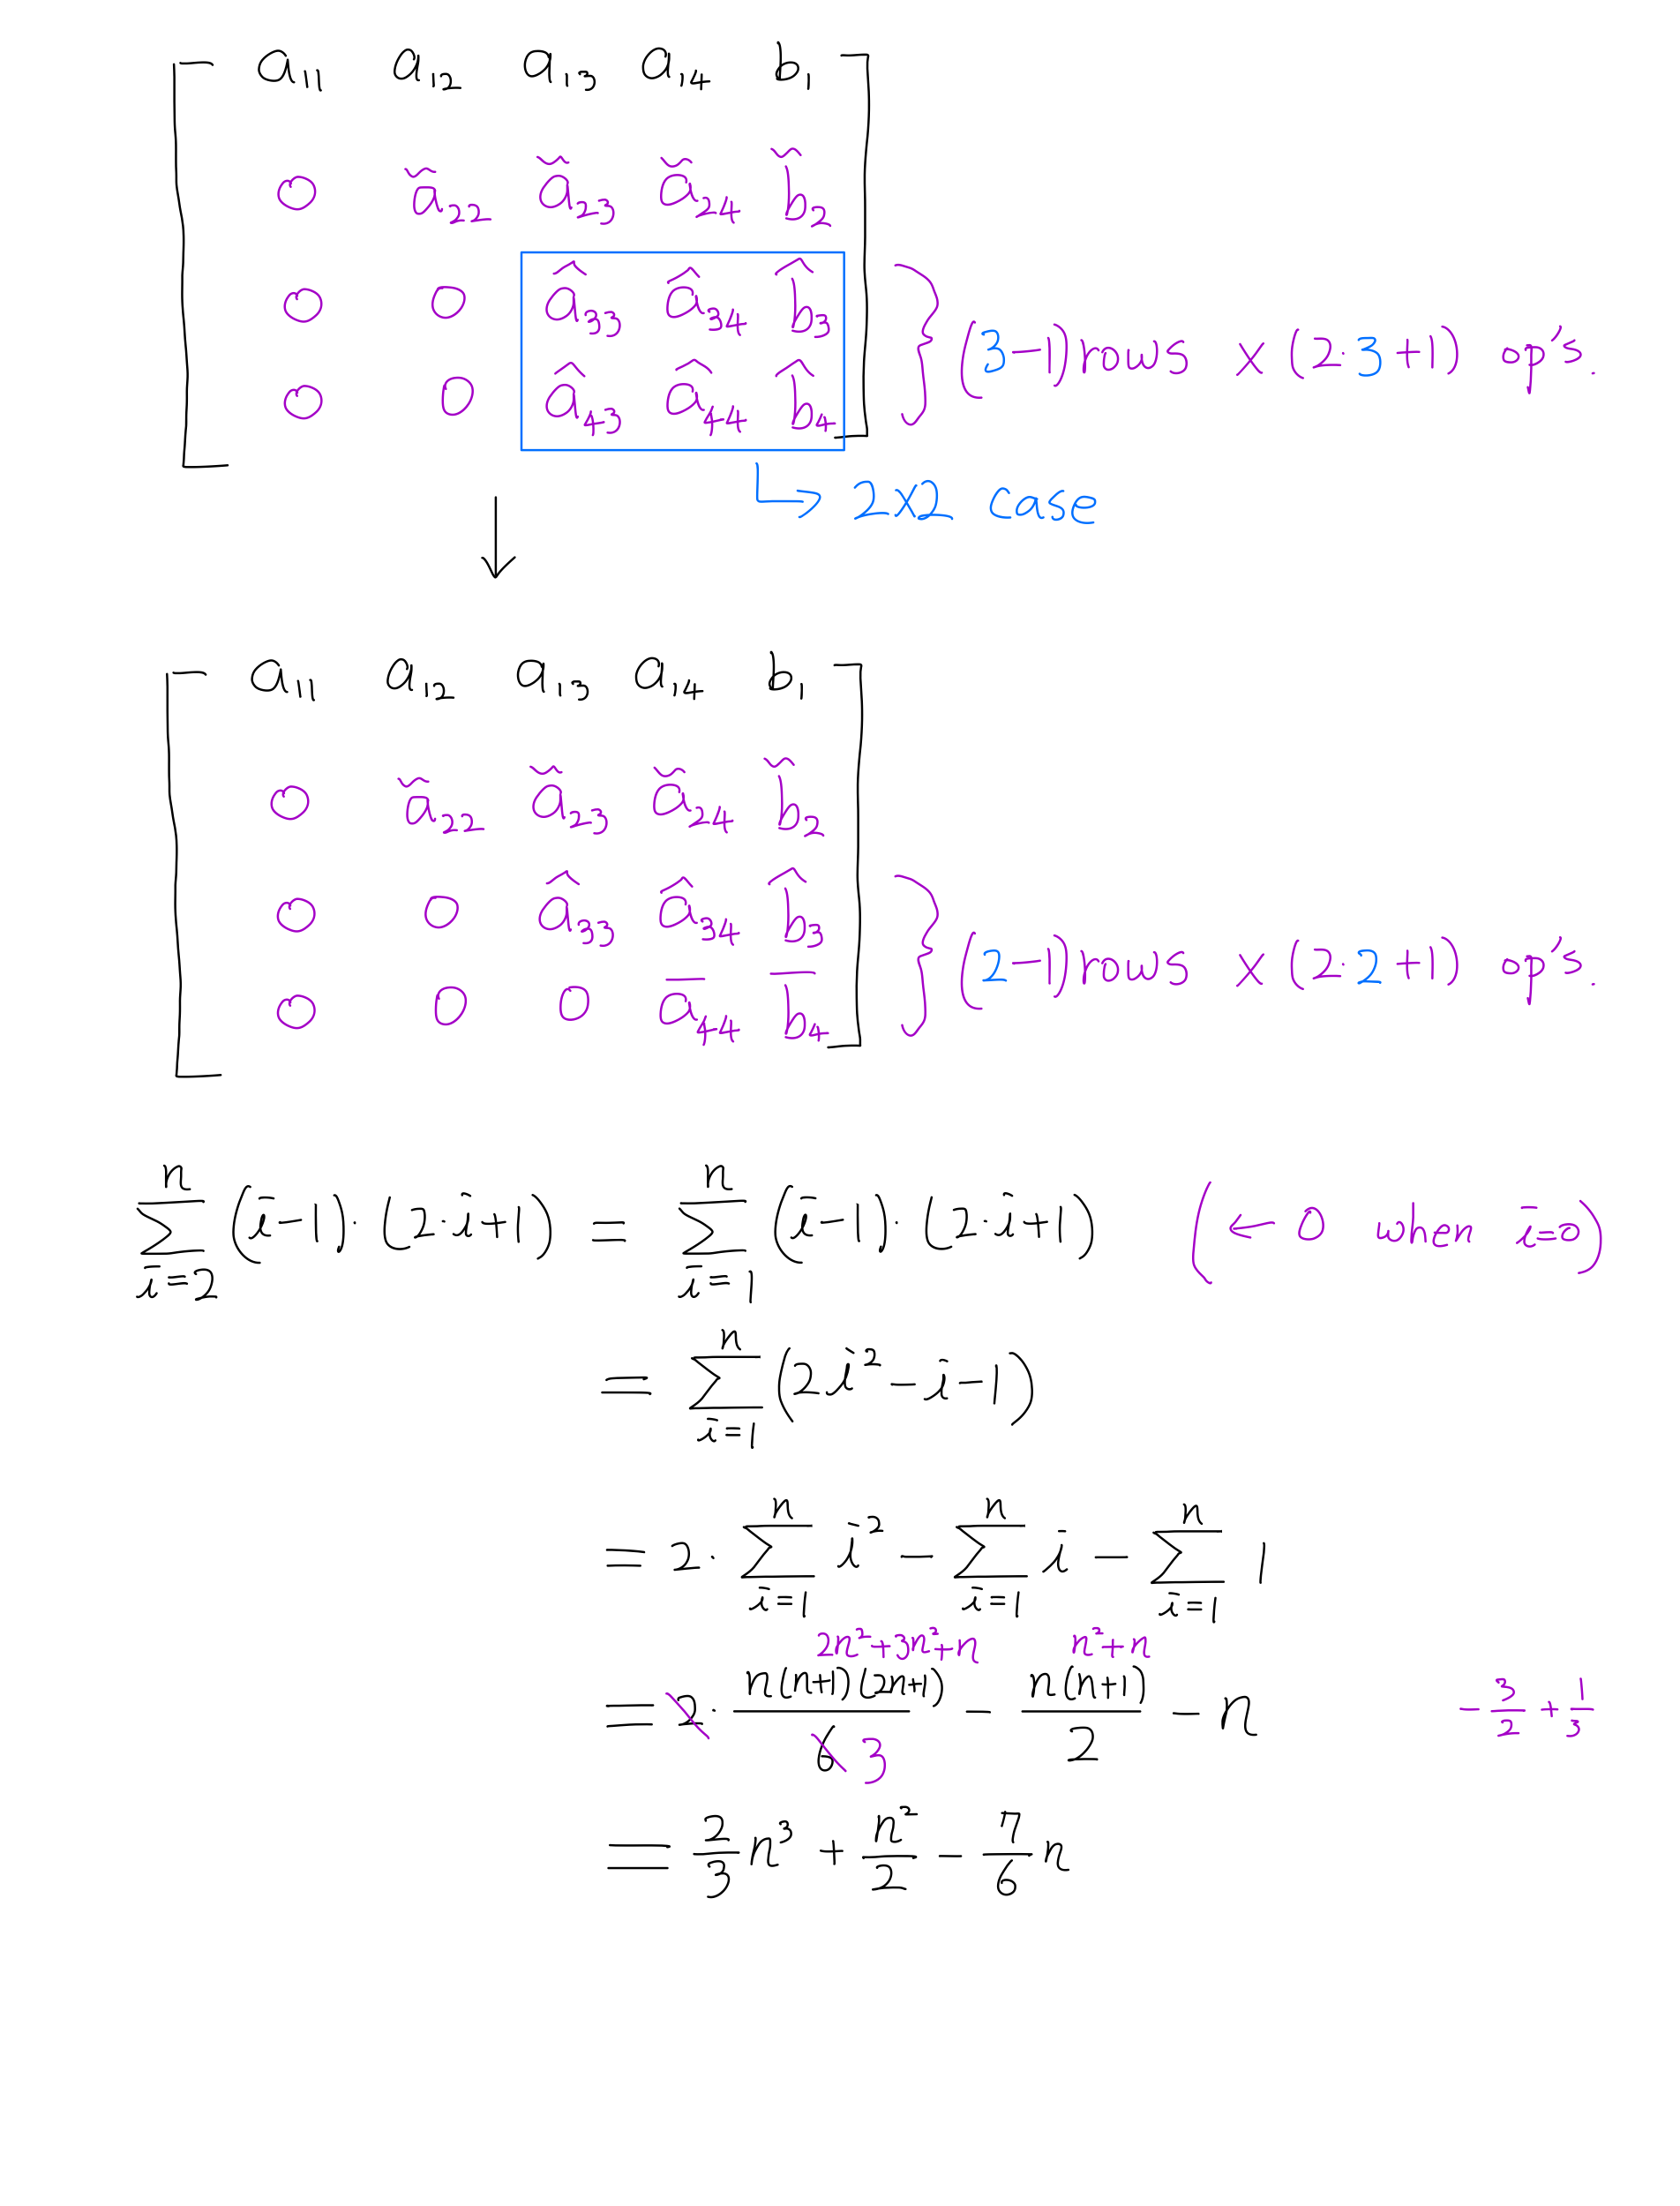 a₁₁ a₁₂ a₁₃ a₁₄ b₁
0 ã₂₂ ã₂₃ ã₂₄ b̃₂
0 0 â₃₃ â₃₄ b̂₃
0 0 â₄₃ â₄₄ b̂₄
(3-1)rows × (2·3+1) op's.
↳ 2×2 case
↓
a₁₁ a₁₂ a₁₃ a₁₄ b₁
0 ã₂₂ ã₂₃ ã₂₄ b̃₂
0 0 â₃₃ â₃₄ b̂₃
0 0 0 a̅₄₄ b̅₄
(2-1)rows × (2·2+1) op's.
∑_{i=2}^{n} (i-1)·(2·i+1) = ∑_{i=1}^{n} (i-1)·(2·i+1) (← 0 when i=0)
= ∑_{i=1}^{n} (2i²-i-1)
= 2· ∑_{i=1}^{n} i² - ∑_{i=1}^{n} i - ∑_{i=1}^{n} 1
2n²+3n²+n n²+n
= 2· n(n+1)(2n+1)/6 3 - n(n+1)/2 - n -3/2 + 1/3
= 2/3 n³ + n²/2 - 7/6 n